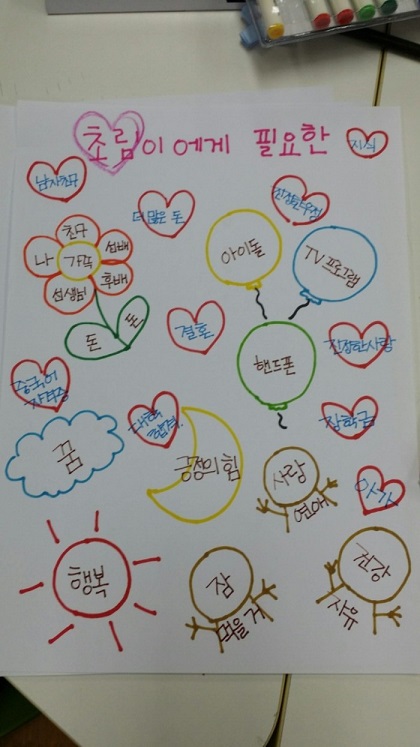 초림이에게 필요한
지식
남자친구
더 많은 돈
진정한 우정
친구
선배
나
가족
선생님
후배
돈
돈
아이돌
TV 프로그램
결혼
핸드폰
진정한 사랑
중국어
자격증
대학
합격
장학금
꿈
긍정의 힘
사랑
연애
아가
행복
잠
먹을 거
건강
자유